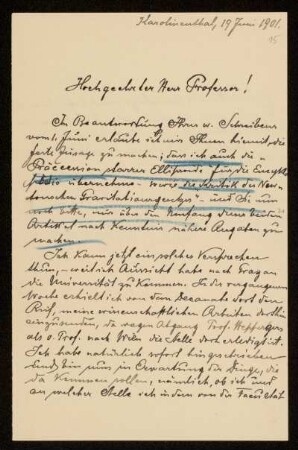 Karolinenthal, 19 Juni 1901.
Hochgeehrter Herr Professor!
In Beantwortung Ihres w. Schreibens
vom 1. Juni erlaube ich mir Ihnen hiemit die
feste Zusage zu machen, dass ich auch die
Präcession starrer Ellipsoide für die Encyklo-
pädie übernehme - sowie die Kritik des New-
tonschen Gravitationsgesetzes - und Sie nur
noch bitte, mir über den Umfang dieser beiden
Artikel nach Kenntnis nähere Angaben zu
machen.
Ich kann jetzt ein solches Versprechen
thun, - weil ich Aussicht habe nach Graz an
die Universität zu kommen. In der vergangenen
Woche erhielt ich von dem Decanate dort den
Ruf, meine wissenschaftlichen Arbeiten dorthin
einzusenden, da wegen Abgang Prof. Hepperger
als o. Prof. nach Wien die Stelle dort erledigt ist.
Ich habe natürlich sofort hingeschrieben
und bin nun in Erwartung der Dinge, die
da kommen sollen, nämlich, ob ich und
an welcher Stelle ich in dem von der Facultät